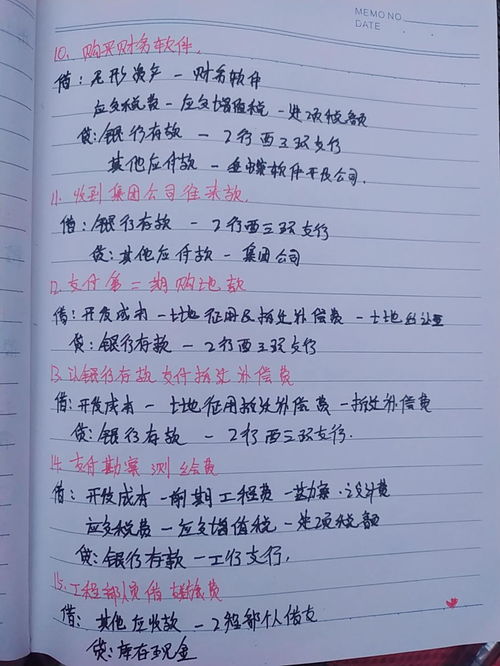 MEMO NO.
DATE
10. 购买财务软件.
借: 无形资产 - 财务软件
应交税费 - 应交增值税 - 进项税额
贷: 银行存款 - 工行西三环支行
其他应付款 - 软件开发公司.
11. 收到集团公司往来款.
借: 银行存款 - 工行西三环支行
贷: 其他应付款 - 集团公司
12. 支付第二期购地款
借: 开发成本 - 土地征用及拆迁补偿费 - 土地出让金
贷: 银行存款 - 工行西三环支行
13. 以银行存款支付拆迁补偿费
借: 开发成本 - 土地征用拆迁补偿费 - 拆迁补偿费
贷: 银行存款 - 工行西三环支行.
14. 支付勘察测绘费
借: 开发成本 - 前期工程费 - 勘察·设计费
应交税费 - 应交增值税 - 进项税额
贷: 银行存款 - 工行支行.
15. 工程部人员借差旅费
借: 其他应收款 - 工程部个人借支
贷: 库存现金